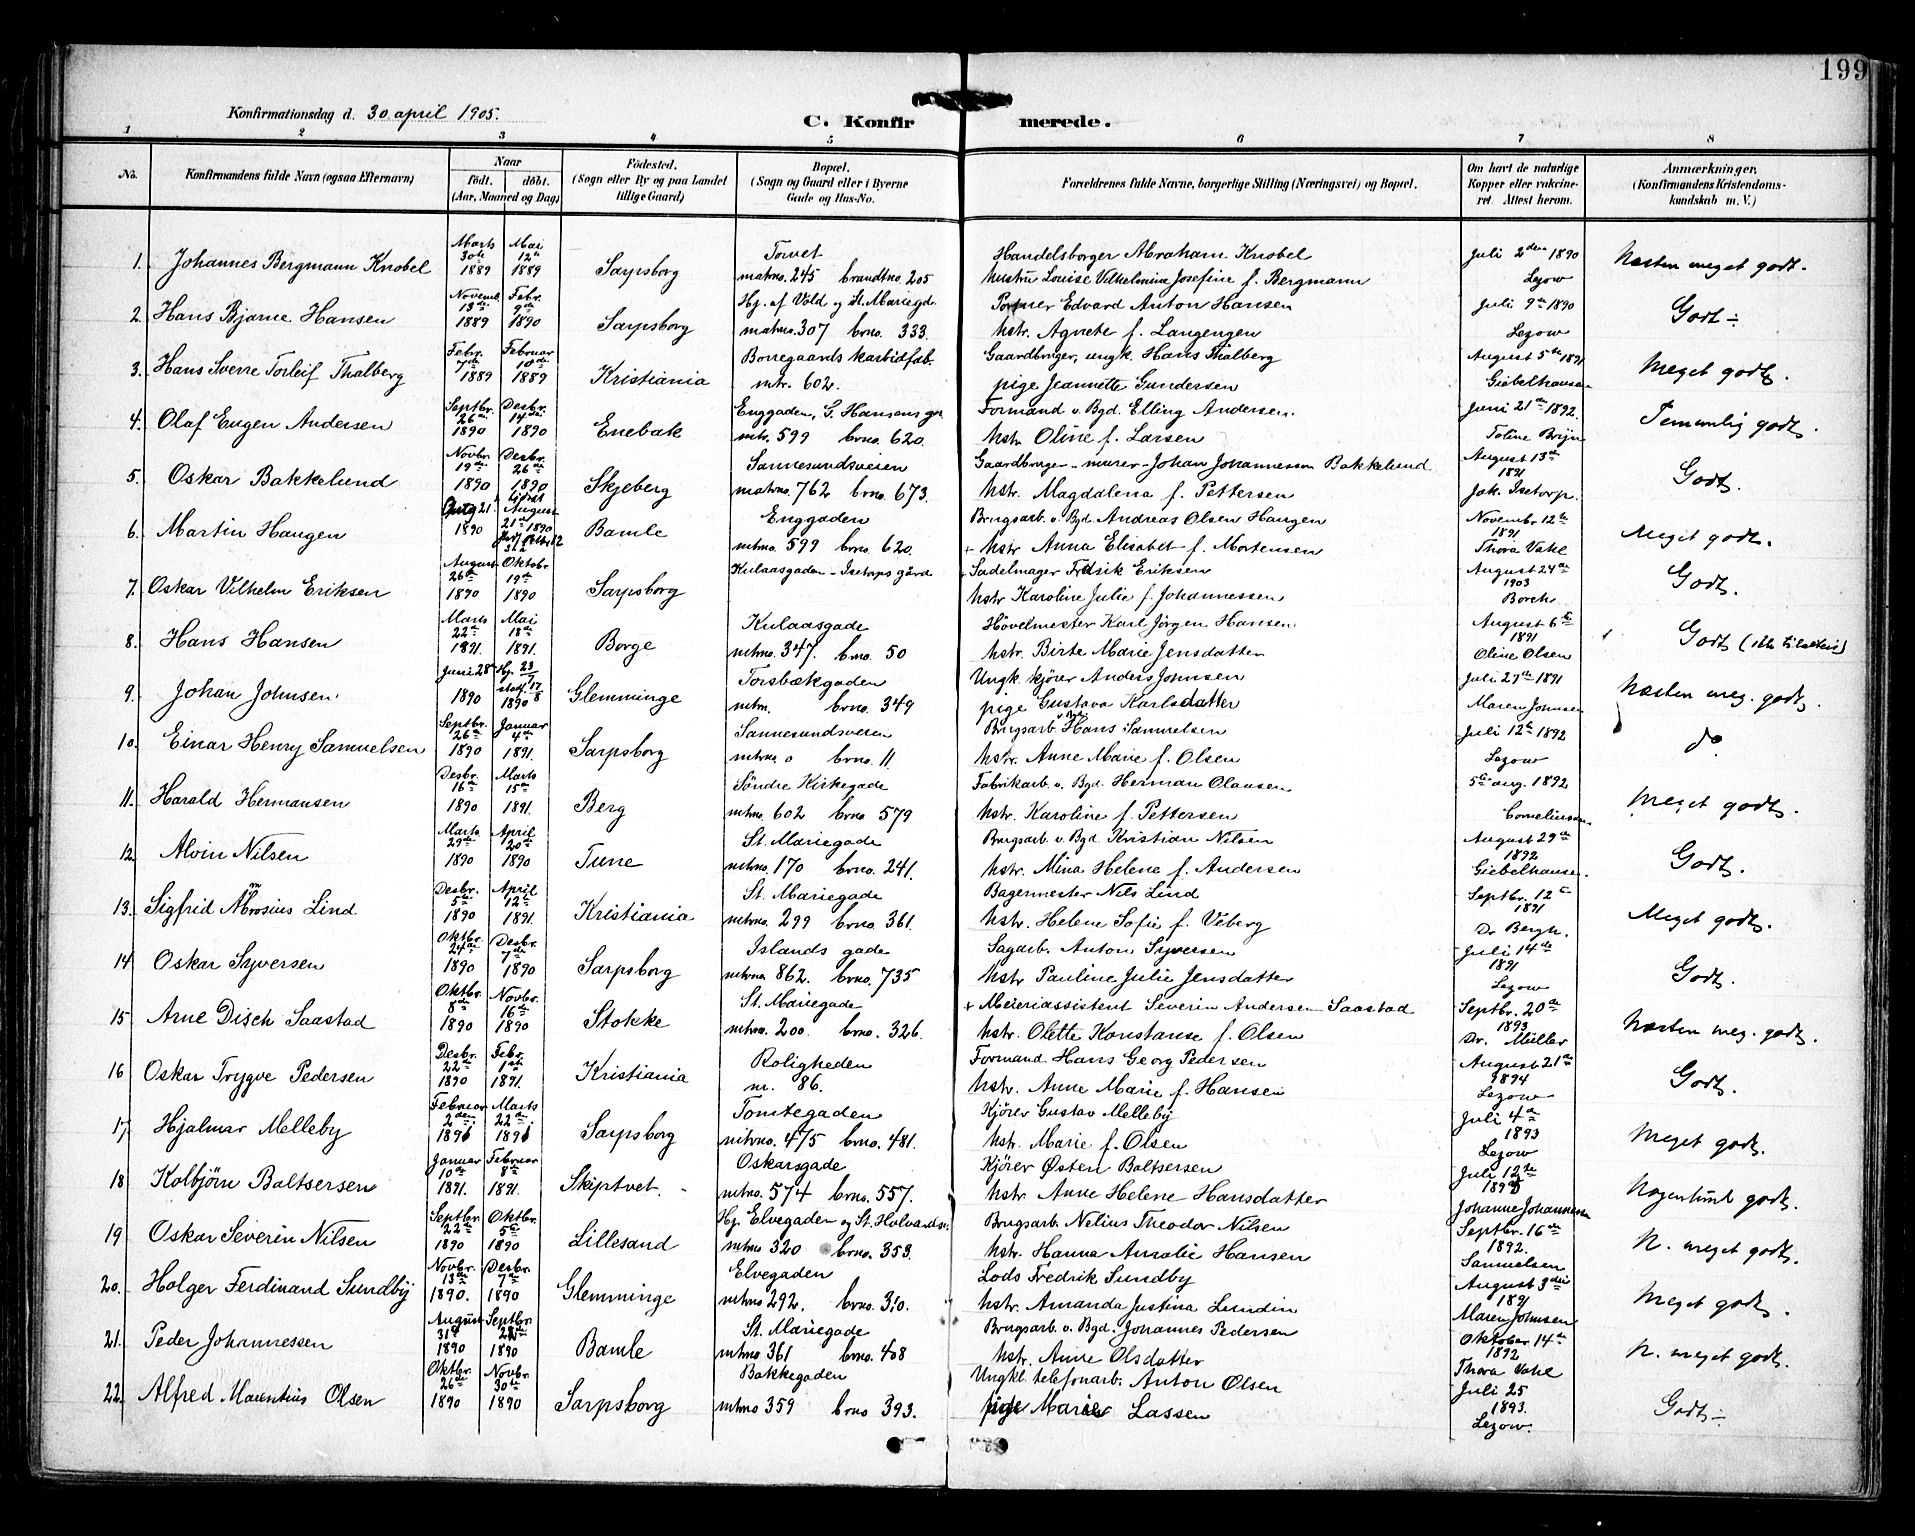 199
Konfirmationsdag d. 30 april 1905.
C. Konfirmerede.
1 2 3 4 5 6 7 8
No. Konfirmandens fulde Navn (ogsaa Efternavn) Naar født. døbt. (Aar, Maaned og Dag) Fødested. (Sogn eller By og paa Landet tillige Gaard) Bopæl. (Sogn og Gaard eller i Byerne Gade og Hus-No. Forældrenes fulde Navne, borgerlige Stilling (Næringsvei) og Bopæl. Om havt de naturlige Kopper eller vakcineret. Attest herom. Anmærkninger. (Konfirmandens Kristendomskundskab m. V.)
1. Johannes Bergmann Knobel Marts 30te 1889 Mai 12te 1889 Sarpsborg Torvet matrno. 245 brandtno. 205 Handelsborger Abraham Knobel hustru Louise Vilhelmina Josefine f. Bergmann Juli 2den 1890 Lezow Næsten meget godt.
2. Hans Bjarne Hansen Novemb. 13de 1889 Febr. 9de 1890 Sarpsborg Hj. af Vold og St. Mariegd. matrno. 307 brno. 333. Portner Edvard Anton Hansen hstr. Agnete f. Langengen Juli 9de 1890 Lezow Godt ÷
3. Hans Sverre Torleif Thalberg Febr. 7de 1889 Februar 10de 1889 Kristiania Borregaards karbidfab. mtr. 602. Gaardbruger, ungk. Hans Thalberg pige Jeannette Gundersen August 5te 1891 Giebelhausen Meget godt.
4. Olaf Eugen Andersen Septbr. 26de 1890 Desbr. 14de 1890 Enebak Enggaden, G. Hansens gr mtr. 599 brno. 620. Formand v. Bgd. Elling Andersen. hstr. Oline f. Larsen Juni 21de 1892. Toline Bryn Temmelig godt.
5. Oskar Bakkelund Novbr. 19de 1890 Desbr. 26de 1890 Skjeberg Sannesundsveien matrno. 762 brno. 673. Gaardbruger - murer - Johan Johannessen Bakkelund hstr. Magdalena f. Pettersen August 13de 1891 Jak. Isetorp. Godt.
6. Martin Haugen Aug 21. 1890 August 21de 1890 Bamle Enggaden mtrno. 599 brno. 620. Brugsarb. v. Bgd. Andreas Olsen Haugen + hstr Anna Elisabet f. Mortensen Novembr 12te 1891 Thora Vahl Meget godt.
7. Oskar Vilhelm Eriksen August 26de 1890 Oktobr 19de 1890 Sarpsborg Kulaasgaden - Isetorps gård Sadelmager Fredrik Eriksen hstr Karoline Julie f. Johannessen August 24de 1903 Borch Godt.
8. Hans Hansen Marts 22de 1891. Mai 18de 1891. Borge Kulaasgade mtrno. 347. brno. 50 Hövelmester Karl Jörgen Hansen. hstr. Birte Marie Jensdatter August 6te 1891 Oline Olsen Godt.
9. Johan Johnsen. Juni 28de 1890 Hj. 23/7 stadf. 17/8 1890 Glemminge Torsbækgaden mtrn. brno. 349 Ungk. kjører Anders Johnsen pige Gustava Karlsdatter Juli 27de 1891 Maren Johnsen Næsten meg. godt.
10. Einar Henry Samuelsen Septbr. 26de 1890 Januar 4de 1891. Sarpsborg Sannesundsveien mtrno. 0 brno. 11. Brugsarb. v. Bgd. Hans Samuelsen hstr. Anne Marie f. Olsen Juli 12te 1892 Lezow do
11. Harald Hermansen Desbr. 16de 1890 Marts 15de 1891. Berg Söndre Kirkegade mtrno. 602 brno 579 Fabrikarb. v. Bgd. Herman Olausen hstr. Karoline f. Pettersen 5te aug. 1892 Corneliussen Meget godt.
12. Alvin Nilsen Marts 29de 1890 April 20de 1890 Tune St. Mariegade mtrno. 170 brno. 241. Brugsarb v. Bgd. Kristian Nilsen hstr. Mina Helene f. Andersen August 29de 1892 Giebelhausen Godt.
13. Sigfrid Ambrosius Lind Desbr. 5te 1890 April 12te 1891. Kristiania St. Mariegade mtrno. 299 brno. 361. Bagermester Nils Lind hstr. Helene Sofie f. Viberg Septbr. 12te 1891 Dr Bergh. Meget godt.
14 Oskar Syversen Oktbr. 24de 1890 Desbr. 7de 1890 Sarpsborg Islands gade mtrno 862. brno. 735 Sagarb. Anton Syversen hstr Pauline Julie Jensdatter Juli 14de 1891 Lezow Godt.
15 Arne Disch Saastad Oktbr. 8de 1890 Novbr. 16de 1890 Stokke St. Mariegade mtrno. 200. brno. 326. + Meieriassistent Severin Andersen Saastad hstr. Olette Konstanse f. Olsen Septbr. 20de 1893 Dr. Müller Næsten meg. godt.
16 Oskar Trygve Pedersen Desbr. 22de 1890 Febr. 1ste 1891. Kristiania Roligheden nr. 86. Formand Hans Georg Pedersen hstr. Anne Marie f. Hansen August 21de 1894 Lezow Godt.
17 Hjalmar Melleby Februar 2den 1891 Marts 22de 1891 Sarpsborg Tomtegaden mtrno. 475 brno. 481. Kjører Gustav Melleby hstr. Marie f. Olsen Juli 4de 1893 Lezow Meget godt.
18 Kolbjörn Baltsersen Januar 10de 1891. Februar 8de 1891. Skiptvet. Oskarsgade mtrno. 574 brno. 557. Kjører Østen Baltsersen hstr Anne Helene Hansdatter Juli 12te Johanne Johannessen Nogenlund godt.
19 Oskar Severin Nilsen Septbr. 22de 1890 Oktbr. 5te 1890 Lillesand Hj. Elvegaden og St. Halvardsv. mtrno 320 brno. 353. Brugsarb. Nelius Theodor Nilsen hstr. Hanna Amalie Hansen Septbr. 16de 1892. Samuelsen N. meget godt.
20. Holger Ferdinand Sundby Novbr. 13de 1890. Desbr. 7de 1890 Glemminge Elvegaden mtrno 292. brno. 310. Lods Fredrik Sundby hstr. Amanda Justina Lundin August 3die 1891 Maren Johnsen Meget godt.
21. Peder Johannessen August 31te 1890 Septbr. 28de 1890 Bamle St. Mariegade mtrno 361 brno. 408 Brugsarb. v. Bgd. Johannes Pedersen hstr. Anne Olsdatter Oktober 14de 1892 Thora Vahl N. meget godt.
22. Alfred Marentius Olsen Oktbr. 26de 1890 Novbr. 30te 1890 Sarpsborg Bakkegaden mtrno 359 brno 393. Ungkl. telefonarb. Anton Olsen pige Marie Lassen Juli 25 1893. Lezow. Godt ÷